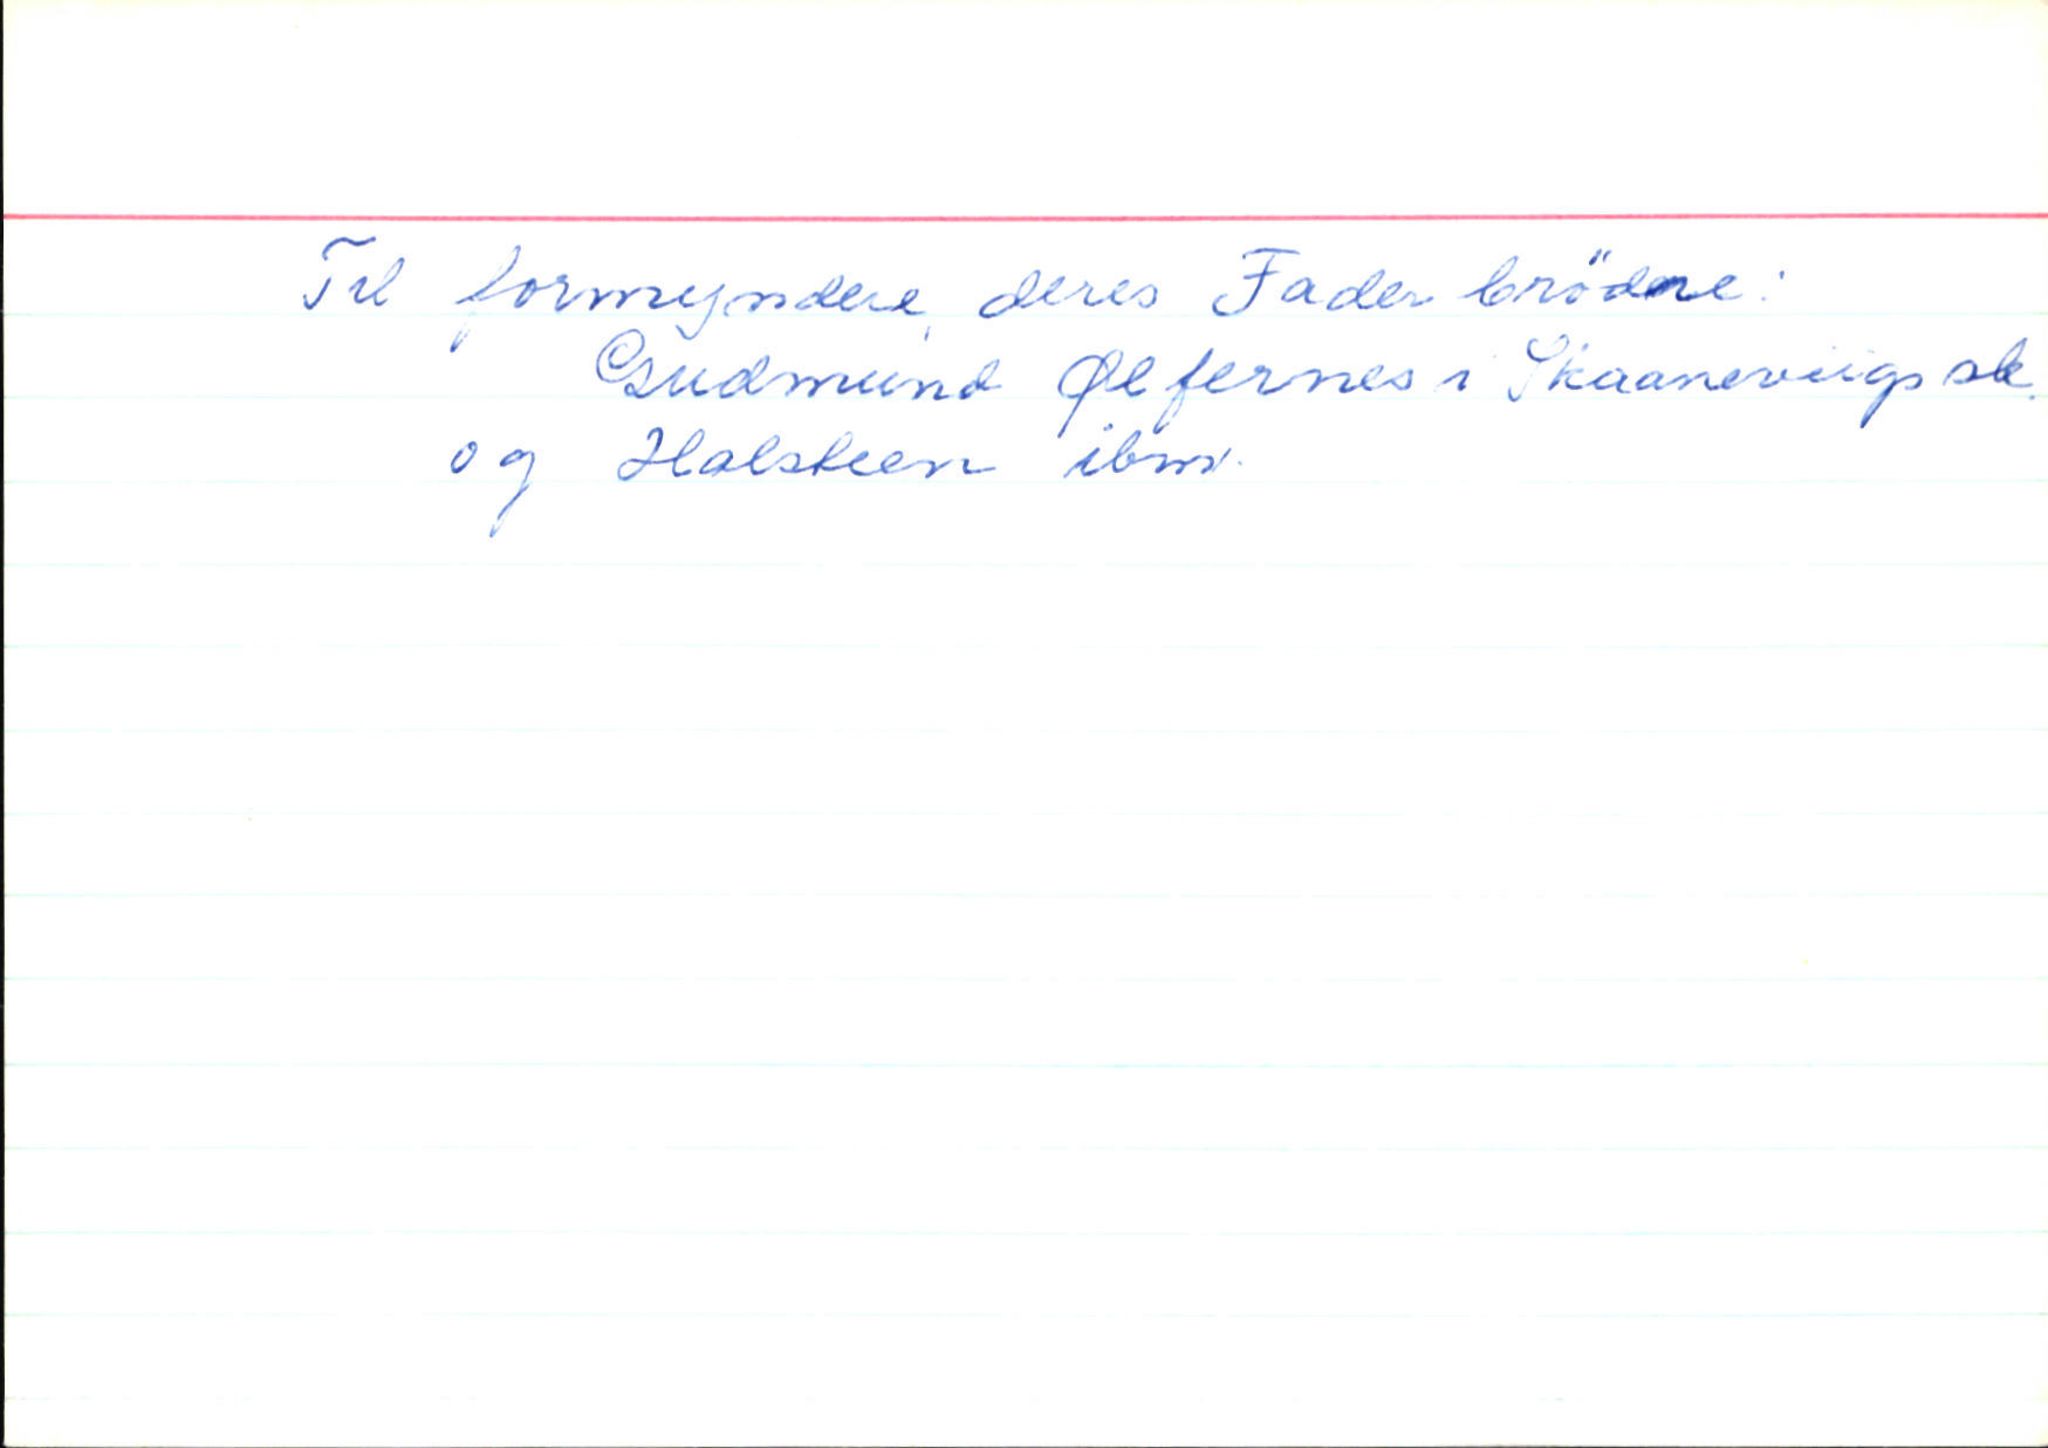 Til formyndere deres Faderbrödre:
Gudmund Ølfernes i Skaaneviigs sk.
og Halsteen ibm.